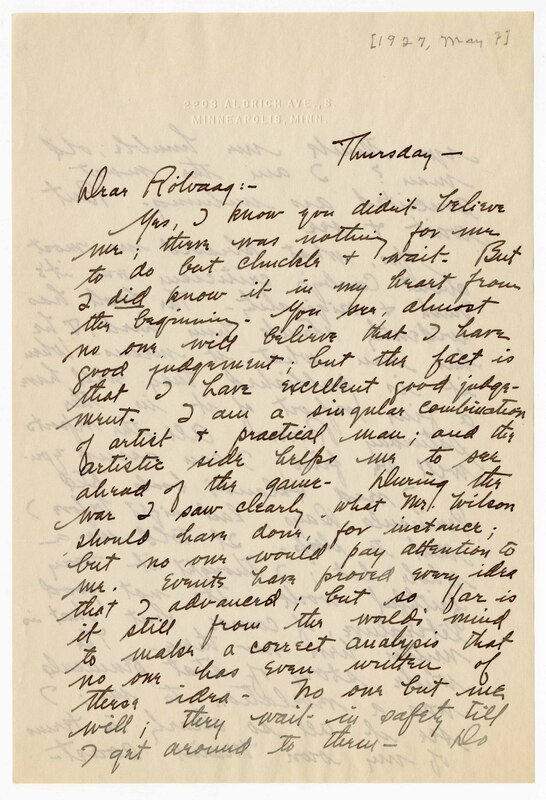 [1927, May 7]
2203 ALDRICH AVE., S.
MINNEAPOLIS, MINN.
Thursday—
Dear Rölvaag:-
Yes, I know you didn't believe
me; there was nothing for me
to do but chuckle & wait. But
I did know it in my heart from
the beginning. You see, almost
no one will believe that I have
good judgement; but the fact is
that I have excellent good judge-
ment. I am a singular combination
of artist & practical man; and the
artistic side helps me to see
ahead of the game. During the
war I saw clearly what Mr. Wilson
should have done, for instance;
but no one would pay attention to
me. Events have proved every idea
that I advanced; but so far is
it still from the world's mind
to make a correct analysis that
no one has even written of
these idea- No one but me
well; they wait in safety till
I get around to them- Do